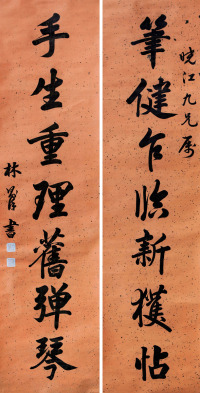 曉江九兄属
筆健乍臨新獲帖
手生重理舊弹琴
林書